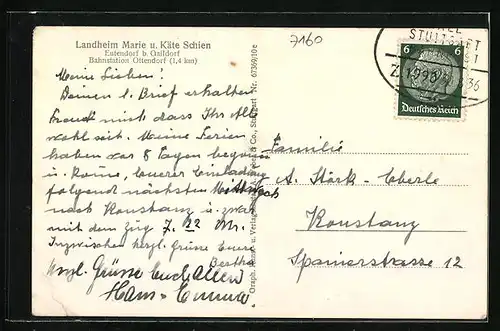 Landheim Marie u. Käte Schien
Eutendorf b. Gaildorf
Bahnstation Ottendorf (1,4 km)
7160
STUTTGART
Z. 1990
36
6 6
Deutsches Reich
Meine Lieben!
Deinen l. Brief erhalten
Freut mich dass Ihr alle
wohl seit. Meine Ferien
haben vor 8 Tagen begonnen
u. komme, Eurer Einladung
folgend nächsten Mittwoch
nach Konstanz u. zwar
mit dem Zug 7.22
Inzwischen herzl. Grüsse Eure
Bertha
Herzl. Grüsse Euch Allen
Hans-
Nr. 67369/10e
Familie
A. Stärk-Eberle
Konstanz
Spanierstrasse 12